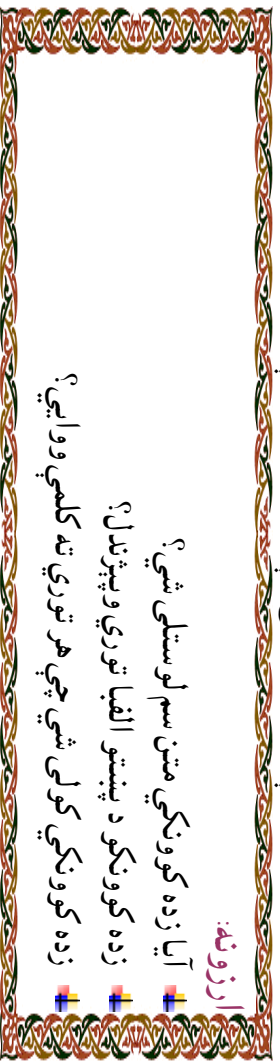 ارزونه:
آیا زده کوونکي متن سم لوستلی شي؟
زده کوونکو د پښتو الفبا توري وپیژندل؟
زده کوونکي کولی شي چې هر توري ته کلمې ووايي؟